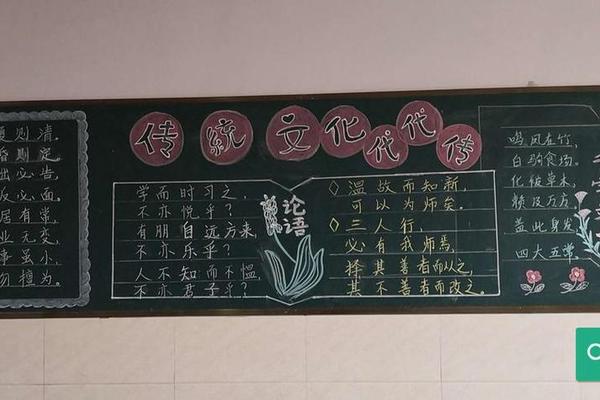 传统文化代代传
夏则清，
昏则定。
出必告，
反必面。
居有常，
业无变。
事虽小，
勿擅为。
学而时习之，
不亦悦乎？
有朋自远方来，
不亦乐乎？
人不知而不愠
不亦君子乎？
论语
◇温故而知新，
可以为师矣。
◇三人行，
必有我师焉，
择其善者而从之，
其不善者而改之。
鸣凤在竹，
白驹食场。
化被草木，
赖及万方。
盖此身发，
四大五常。